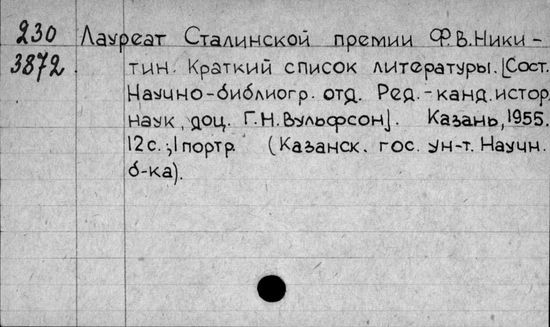 230 Лауреат Сталинской премии Ф.В.Ники-
3872 тин. Краткий список литературы. [Сост.
Научно-библиогр. отд. Ред.-канд. истор.
наук, доц. Г.Н.Вульфсон]. Казань, 1955.
12 с.; 1 портр. (Казанск. гос. ун-т. Научн.
б-ка).